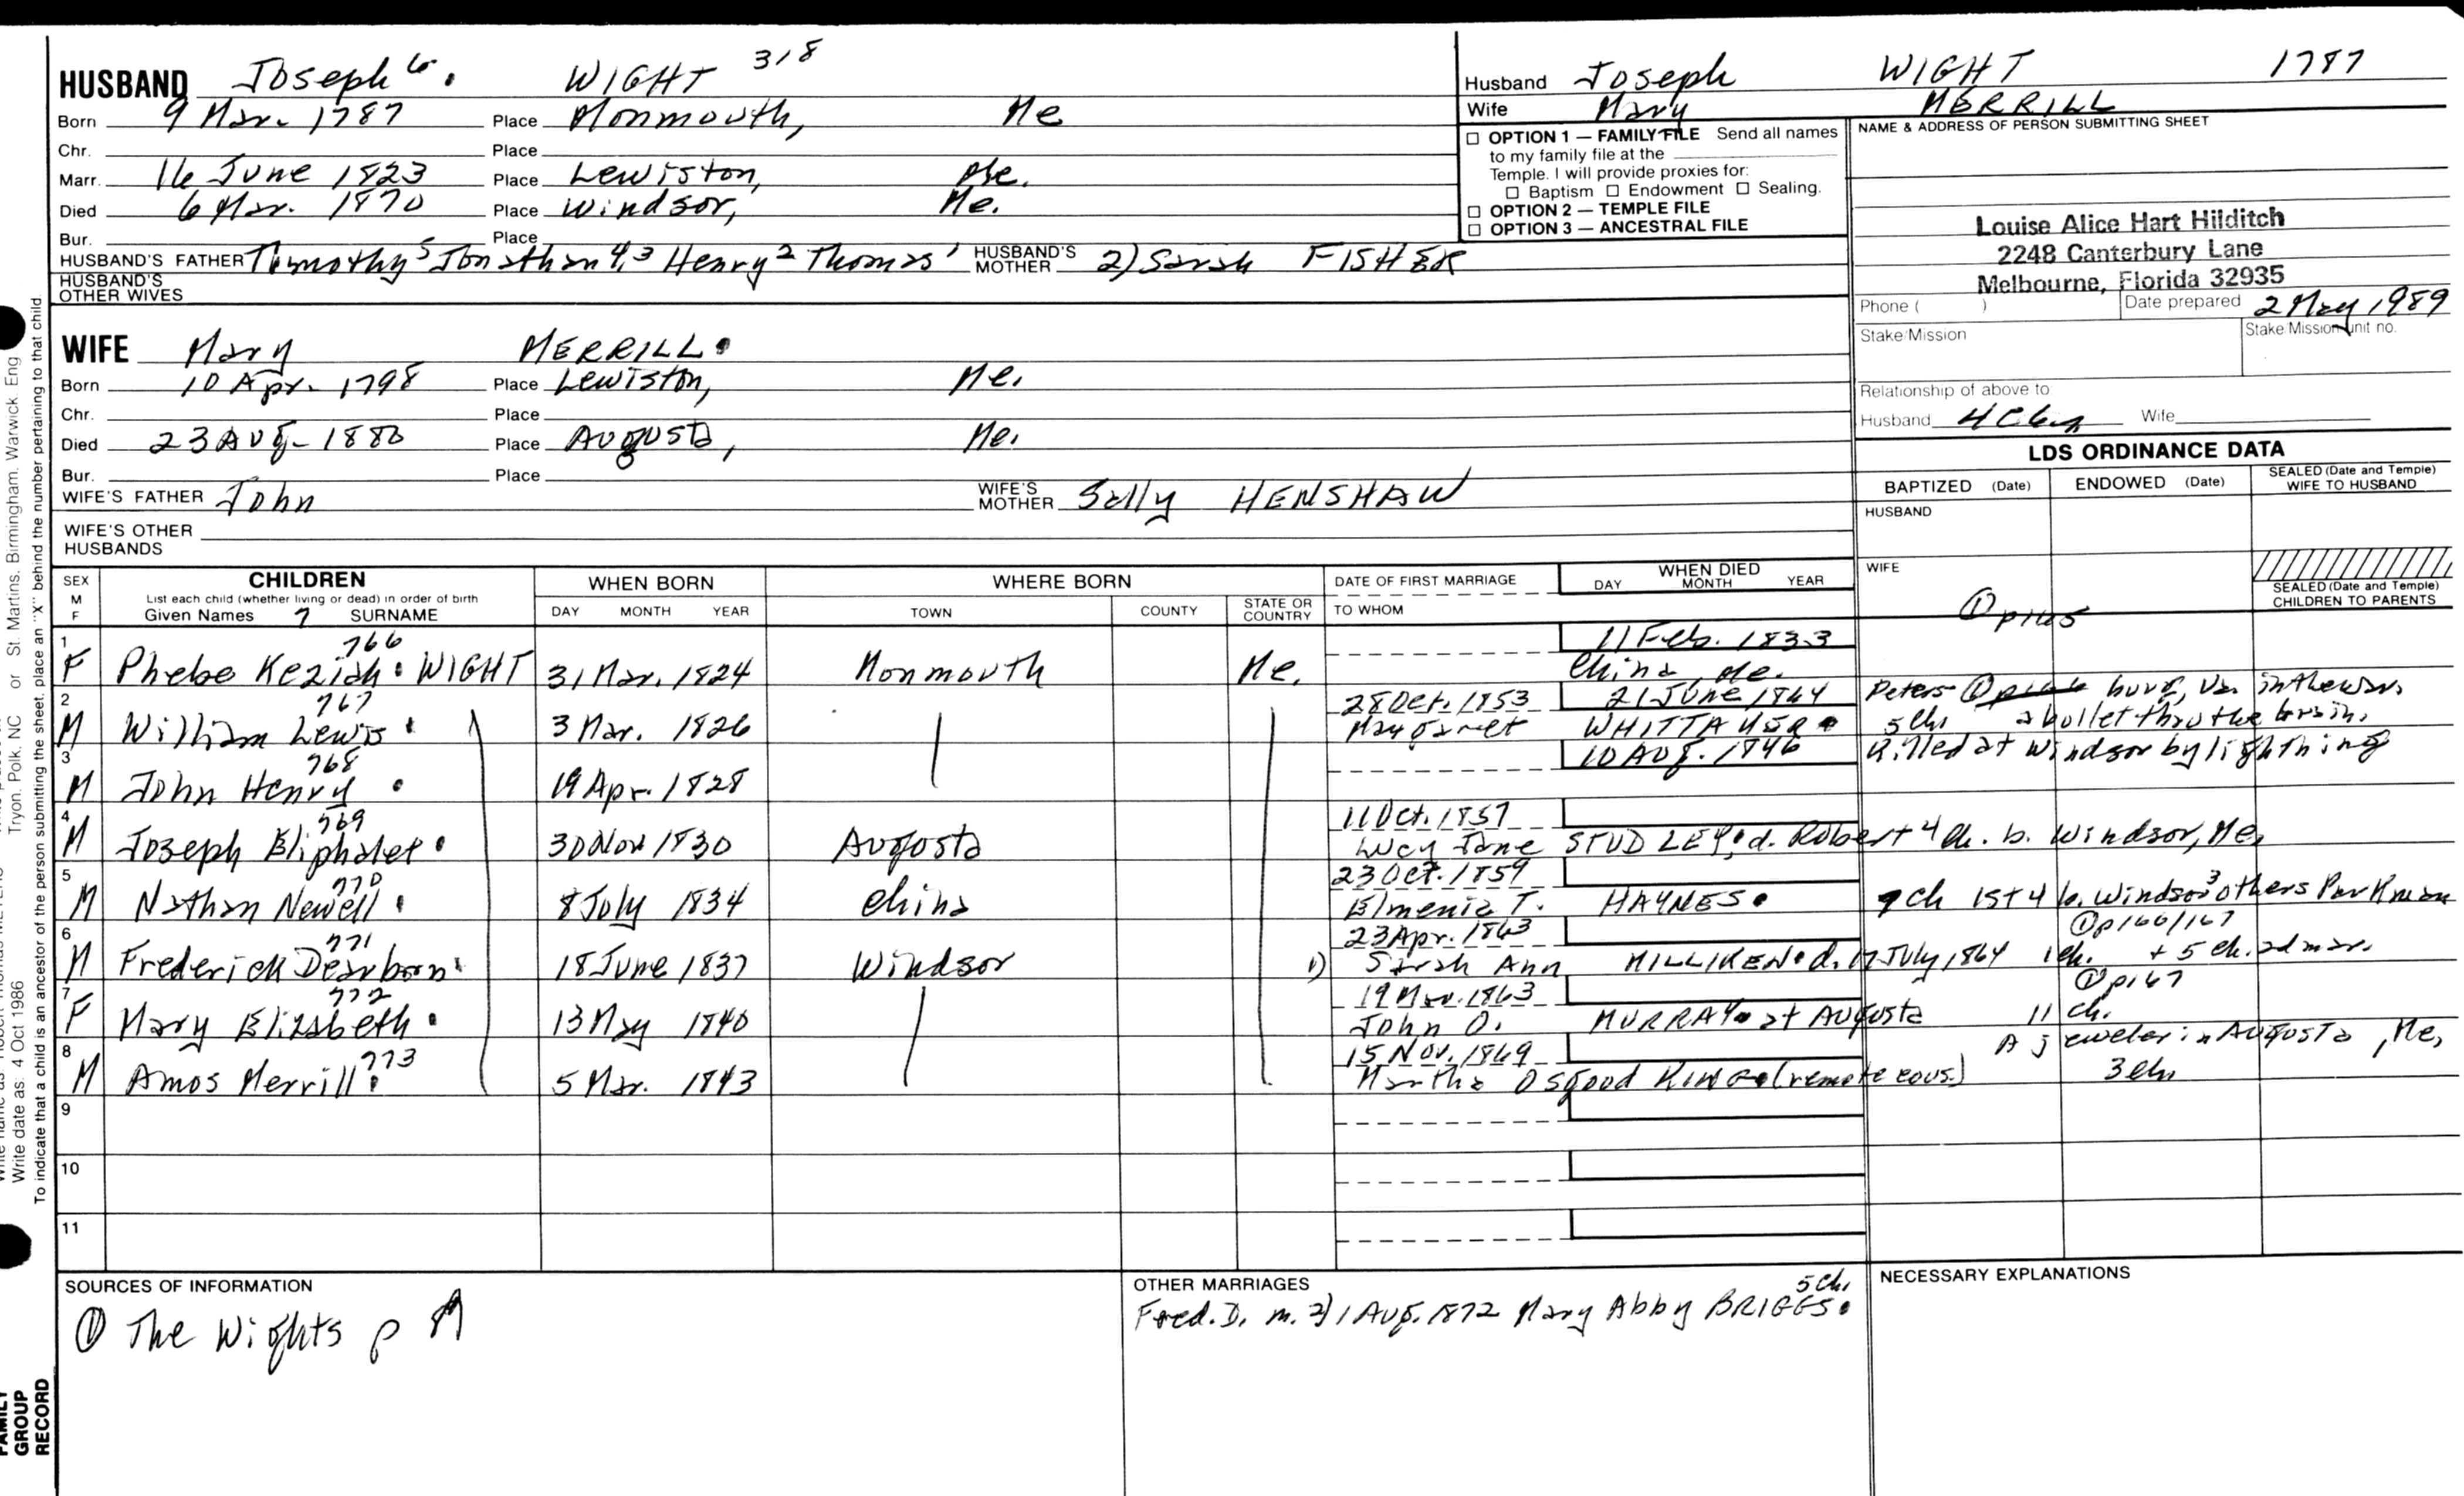 HUSBAND Joseph 6. WIGHT 318
Born 9 Mar. 1787 Place Monmouth, Me
Chr. Place
Marr. 16 June 1823 Place Lewiston, Me.
Died 6 Mar. 1870 Place Windsor, Me.
Bur. Place
HUSBAND'S FATHER Timothy 5 Jonathan 4,3 Henry 2 Thomas 1 HUSBAND'S MOTHER 2) Sarah FISHER
HUSBAND'S OTHER WIVES
Husband Joseph WIGHT 1787
Wife Mary MERRILL
OPTION 1 — FAMILY FILE Send all names
to my family file at the
Temple. I will provide proxies for:
Baptism Endowment Sealing.
OPTION 2 — TEMPLE FILE
OPTION 3 — ANCESTRAL FILE
NAME & ADDRESS OF PERSON SUBMITTING SHEET
Louise Alice Hart Hilditch
2248 Canterbury Lane
Melbourne, Florida 32935
Phone ( ) Date prepared 2 May 1989
Stake/Mission Stake/Mission unit no.
Relationship of above to
Husband 4C6 Wife
WIFE Mary MERRILL.
Born 10 Apr. 1798 Place Lewiston, Me.
Chr. Place
Died 23 Aug- 1880 Place Augusta, Me.
Bur. Place
WIFE'S FATHER John WIFE'S MOTHER Sally HENSHAW
WIFE'S OTHER HUSBANDS
LDS ORDINANCE DATA
BAPTIZED (Date) ENDOWED (Date) SEALED (Date and Temple) WIFE TO HUSBAND
HUSBAND
WIFE
SEALED (Date and Temple) CHILDREN TO PARENTS
SEX M F CHILDREN WHEN BORN WHERE BORN DATE OF FIRST MARRIAGE WHEN DIED
List each child (whether living or dead) in order of birth
Given Names 7 SURNAME DAY MONTH YEAR TOWN COUNTY STATE OR COUNTRY TO WHOM DAY MONTH YEAR
① p165
1 766 11 Feb. 1833
F Phebe Keziah. WIGHT 31 Mar. 1824 Monmouth Me. China, Me.
2 767 28 Oct. 1853 21 June 1864 Petersburg, Va. in the war,
M William Lewis. 3 Mar. 1826 Margaret WHITTAKER. 5 ch. a bullet thru the brain.
3 768 10 Aug. 1846 killed at Windsor by lightning
M John Henry. 19 Apr. 1828
4 769 11 Oct. 1857
M Joseph Eliphalet. 30 Nov 1830 Augusta Lucy Jane STUDLEY, d. Robert 4 ch. b. Windsor, Me.
5 770 23 Oct. 1859
M Nathan Newell. 8 July 1834 China Elmenia T. HAYNES. 7 ch 1st 4 b. Windsor 3 others Parkman
6 771 23 Apr. 1863 ① p166/167
M Frederick Dearborn. 18 June 1837 Windsor 1) Sarah Ann MILLIKEN. d. 17 July, 1864 1 ch. + 5 ch. 2d mar.
7 772 19 Mar. 1863 ① p167
F Mary Elizabeth. 13 May 1840 John O. MURRAY. at Augusta 11 ch.
8 773 15 Nov. 1869 A jeweler in Augusta, Me,
M Amos Merrill. 5 Mar. 1843 Martha Osgood KING. (remote cous.) 3 ch
9
10
11
SOURCES OF INFORMATION
① The Wights p
OTHER MARRIAGES
5 ch.
Fred. D. m. 2) 1 Aug. 1872 Mary Abby BRIGGS.
NECESSARY EXPLANATIONS
St. Martins, Birmingham, Warwick, Eng
or
Tryon, Polk, NC
Write date as: 4 Oct 1986
To indicate that a child is an ancestor of the person submitting the sheet, place an "X" behind the number pertaining to that child.
FAMILY
GROUP
RECORD